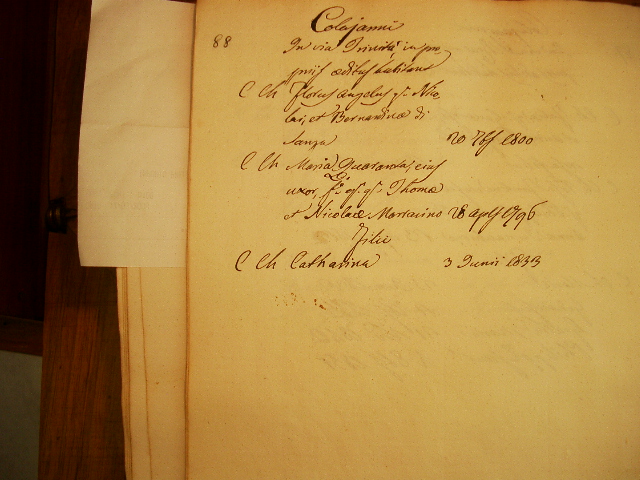 Colajanni
88
In via Trinitatis in pro
prijs ædibus habitant
C Ch Florus Angelus qm. Nico
lai, et Bernardinæ di
Sanza 20 7bs 1800
C Ch Maria Quaranta, ejus
D.
uxor, f. qm. Thomæ
et Nicolaæ Marracino 28 apls 1796
Filii
C Ch Catharina 3 Junii 1833